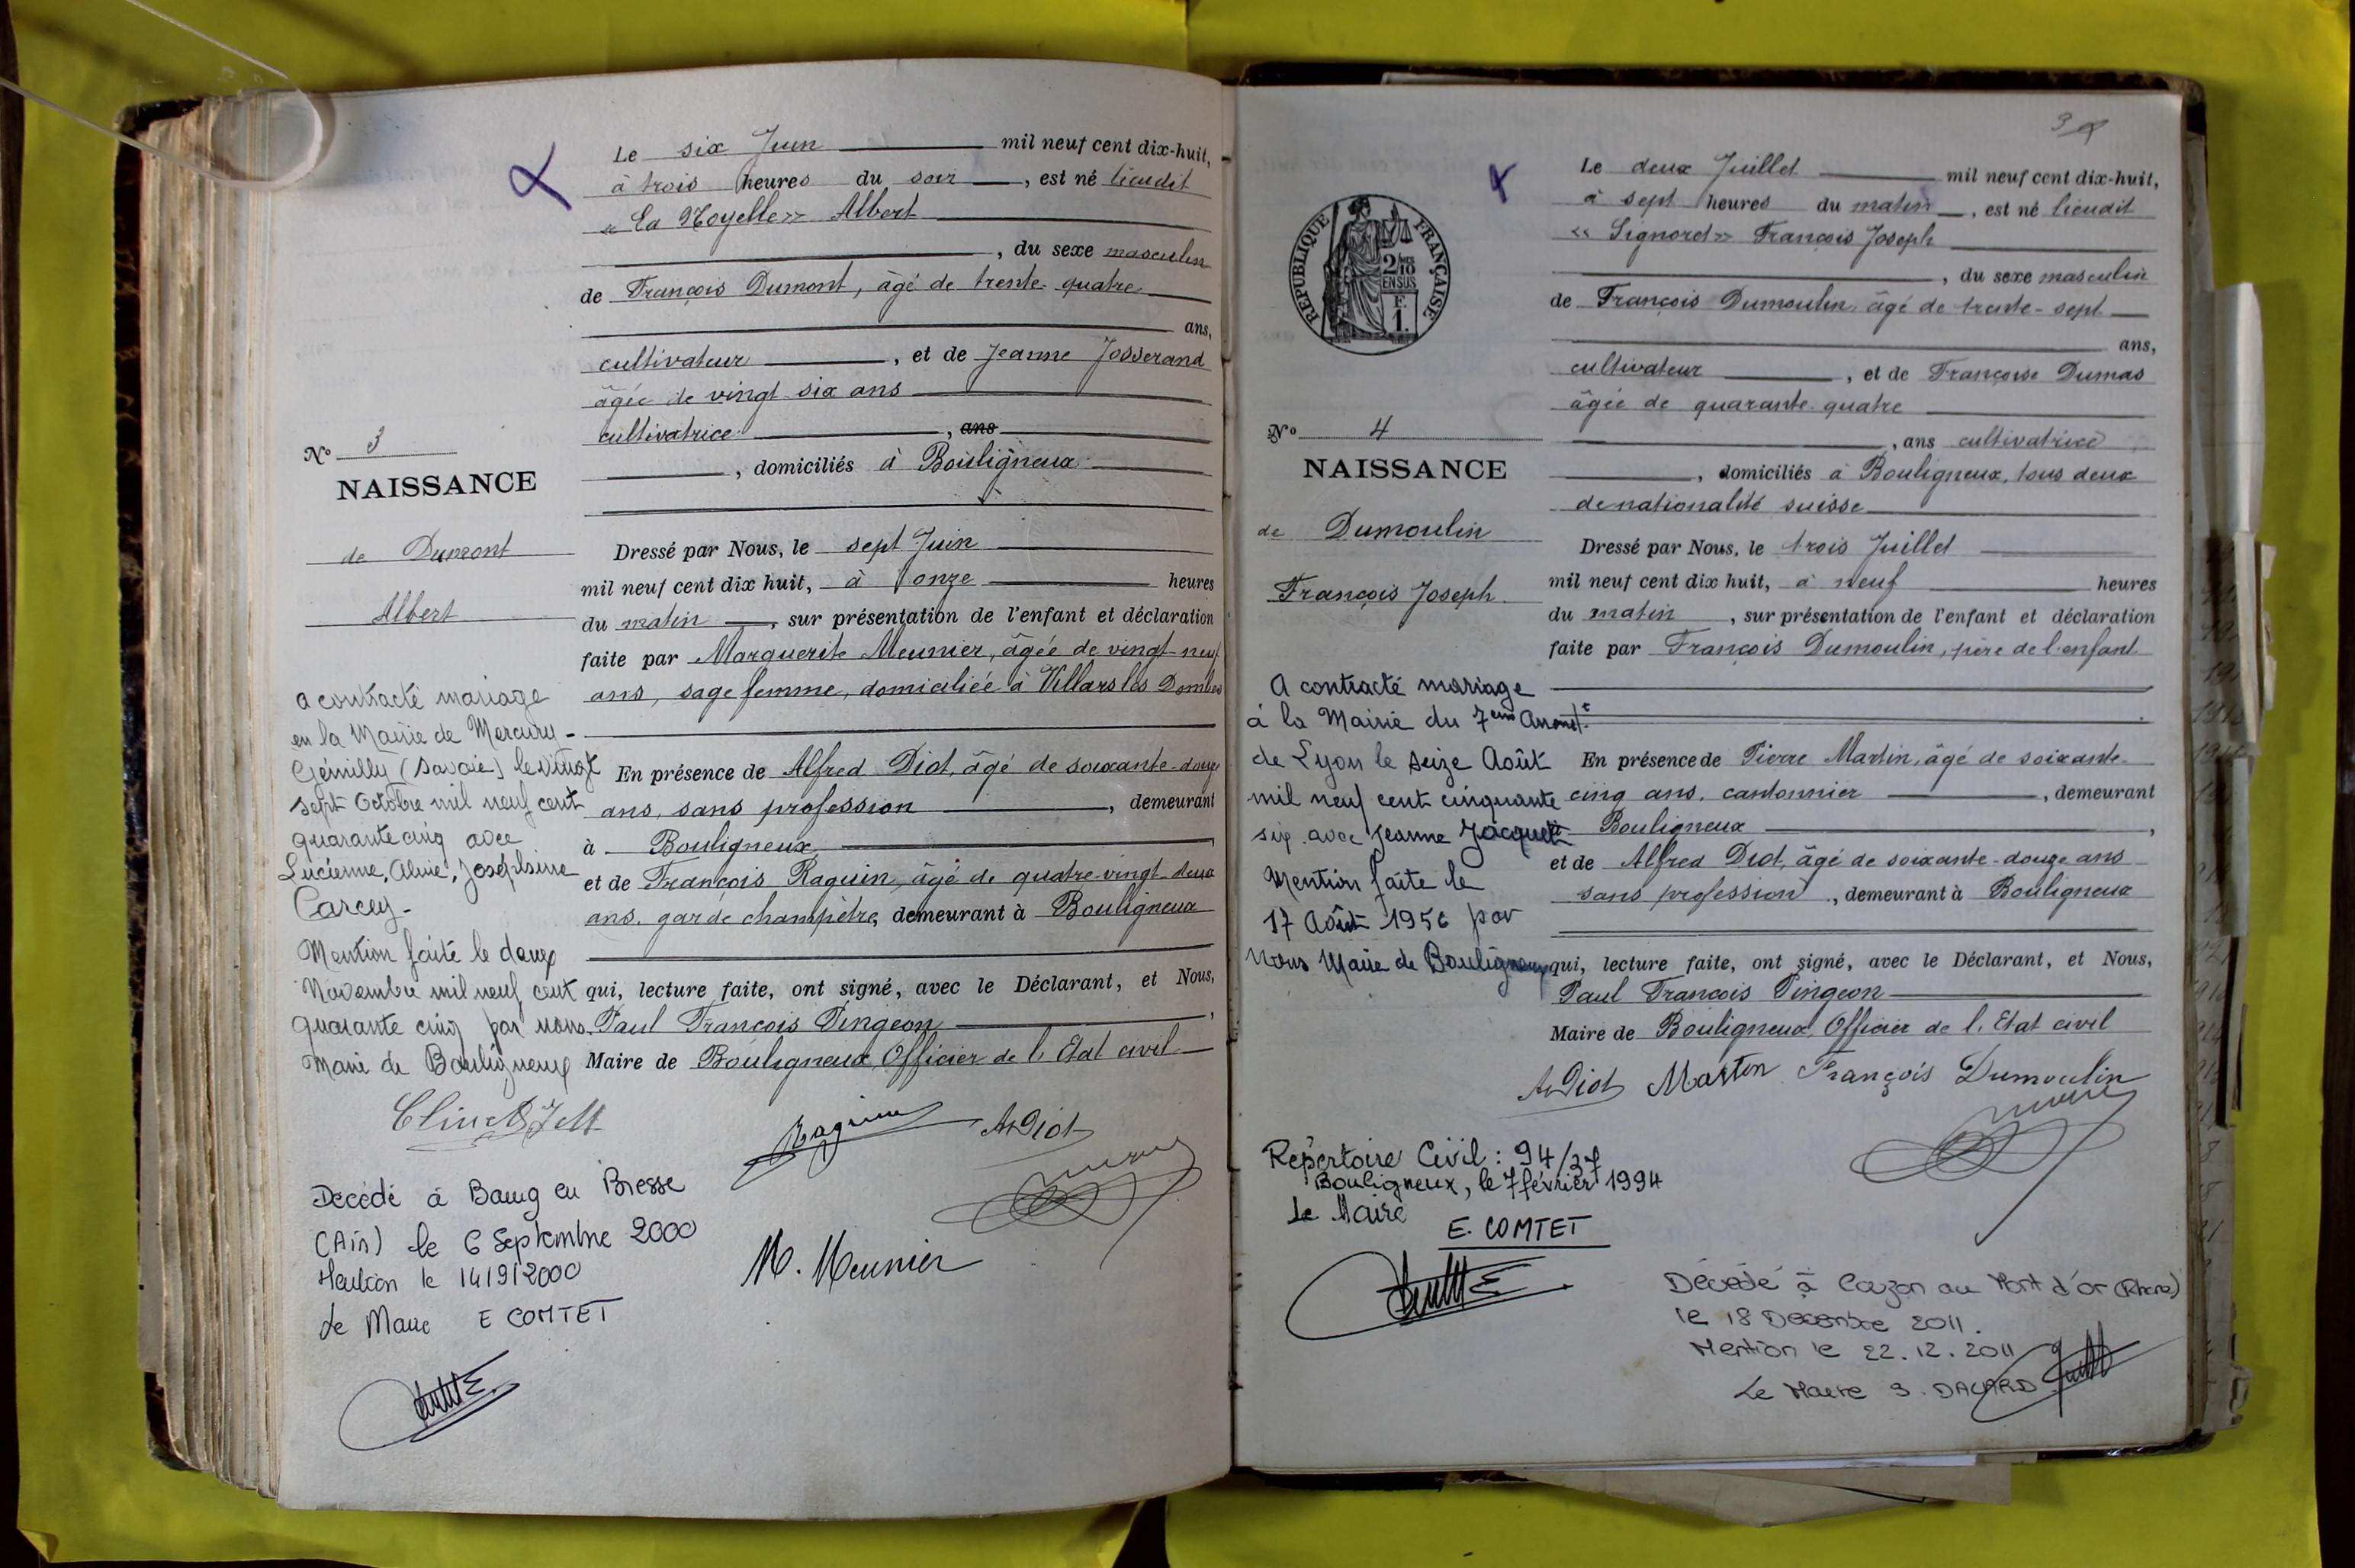 Le six Juin mil neuf cent dix-huit,
à trois heures du soir, est né lieudit
« La Noyelle » Albert
, du sexe masculin
de François Dumont, âgé de trente-quatre
ans,
cultivateur, et de Jeanne Josserand
âgée de vingt-six ans
cultivatrice, ans
, domiciliés à Bouligneux
Dressé par Nous, le sept Juin
mil neuf cent dix huit, à onze heures
du matin, sur présentation de l'enfant et déclaration
faite par Marguerite Meunier, âgée de vingt-neuf
ans, sage femme, domiciliée à Villars les Dombes
En présence de Alfred Diot, âgé de soixante-douze
ans, sans profession, demeurant
à Bouligneux,
et de François Raguin, âgé de quatre-vingt-deux
ans, garde champêtre, demeurant à Bouligneux
qui, lecture faite, ont signé, avec le Déclarant, et Nous,
Paul François Pingeon,
Maire de Bouligneux, Officier de l'Etat civil
Raguin ADiot
M. Meunier
No 3
NAISSANCE
de Dumont
Albert
a contracté mariage
en la Mairie de Mercury-
Gémilly (Savoie) le vingt
sept Octobre mil neuf cent
quarante cinq avec
Lucienne, Aline, Joséphine
Carcey-
Mention faite le deux
Novembre mil neuf cent
quarante cinq par nous
Maire de Bouligneux
Décédé à Baug en Bresse
(Ain) le 6 Septembre 2000
Mention le 14/9/2000
Le Maire E COMTET
3
Le deux Juillet mil neuf cent dix-huit,
à sept heures du matin, est né lieudit
« Signoret » François Joseph
, du sexe masculin
de François Dumoulin, âgé de trente-sept
ans,
cultivateur, et de Françoise Dumas
âgée de quarante-quatre
, ans cultivatrice
, domiciliés à Bouligneux, tous deux
de nationalité suisse
Dressé par Nous, le trois Juillet
mil neuf cent dix huit, à neuf heures
du matin, sur présentation de l'enfant et déclaration
faite par François Dumoulin, père de l'enfant
En présence de Pierre Martin, âgé de soixante-
cinq ans, cantonnier, demeurant
à Bouligneux,
et de Alfred Diot, âgé de soixante-douze ans
sans profession, demeurant à Bouligneux
qui, lecture faite, ont signé, avec le Déclarant, et Nous,
Paul François Pingeon
Maire de Bouligneux, Officier de l'Etat civil
ADiot Martin François Dumoulin
RÉPUBLIQUE FRANÇAISE
2/10
EN SUS
F.
1.
No 4
NAISSANCE
de Dumoulin
François Joseph
A contracté mariage
à la Mairie du 7eme Arrondt
de Lyon le seize Août
mil neuf cent cinquante
six avec Jeanne Jacquet
Mention faite le
17 Août 1956 par
Nous Maire de Bouligneux
Répertoire Civil : 94/27
Bouligneux, le 7 février 1994
Le Maire
E. COMTET
Décédé à Couzon au Mont d'or (Rhône)
le 18 Décembre 2011.
Mention le 22.12.2011
Le Maire